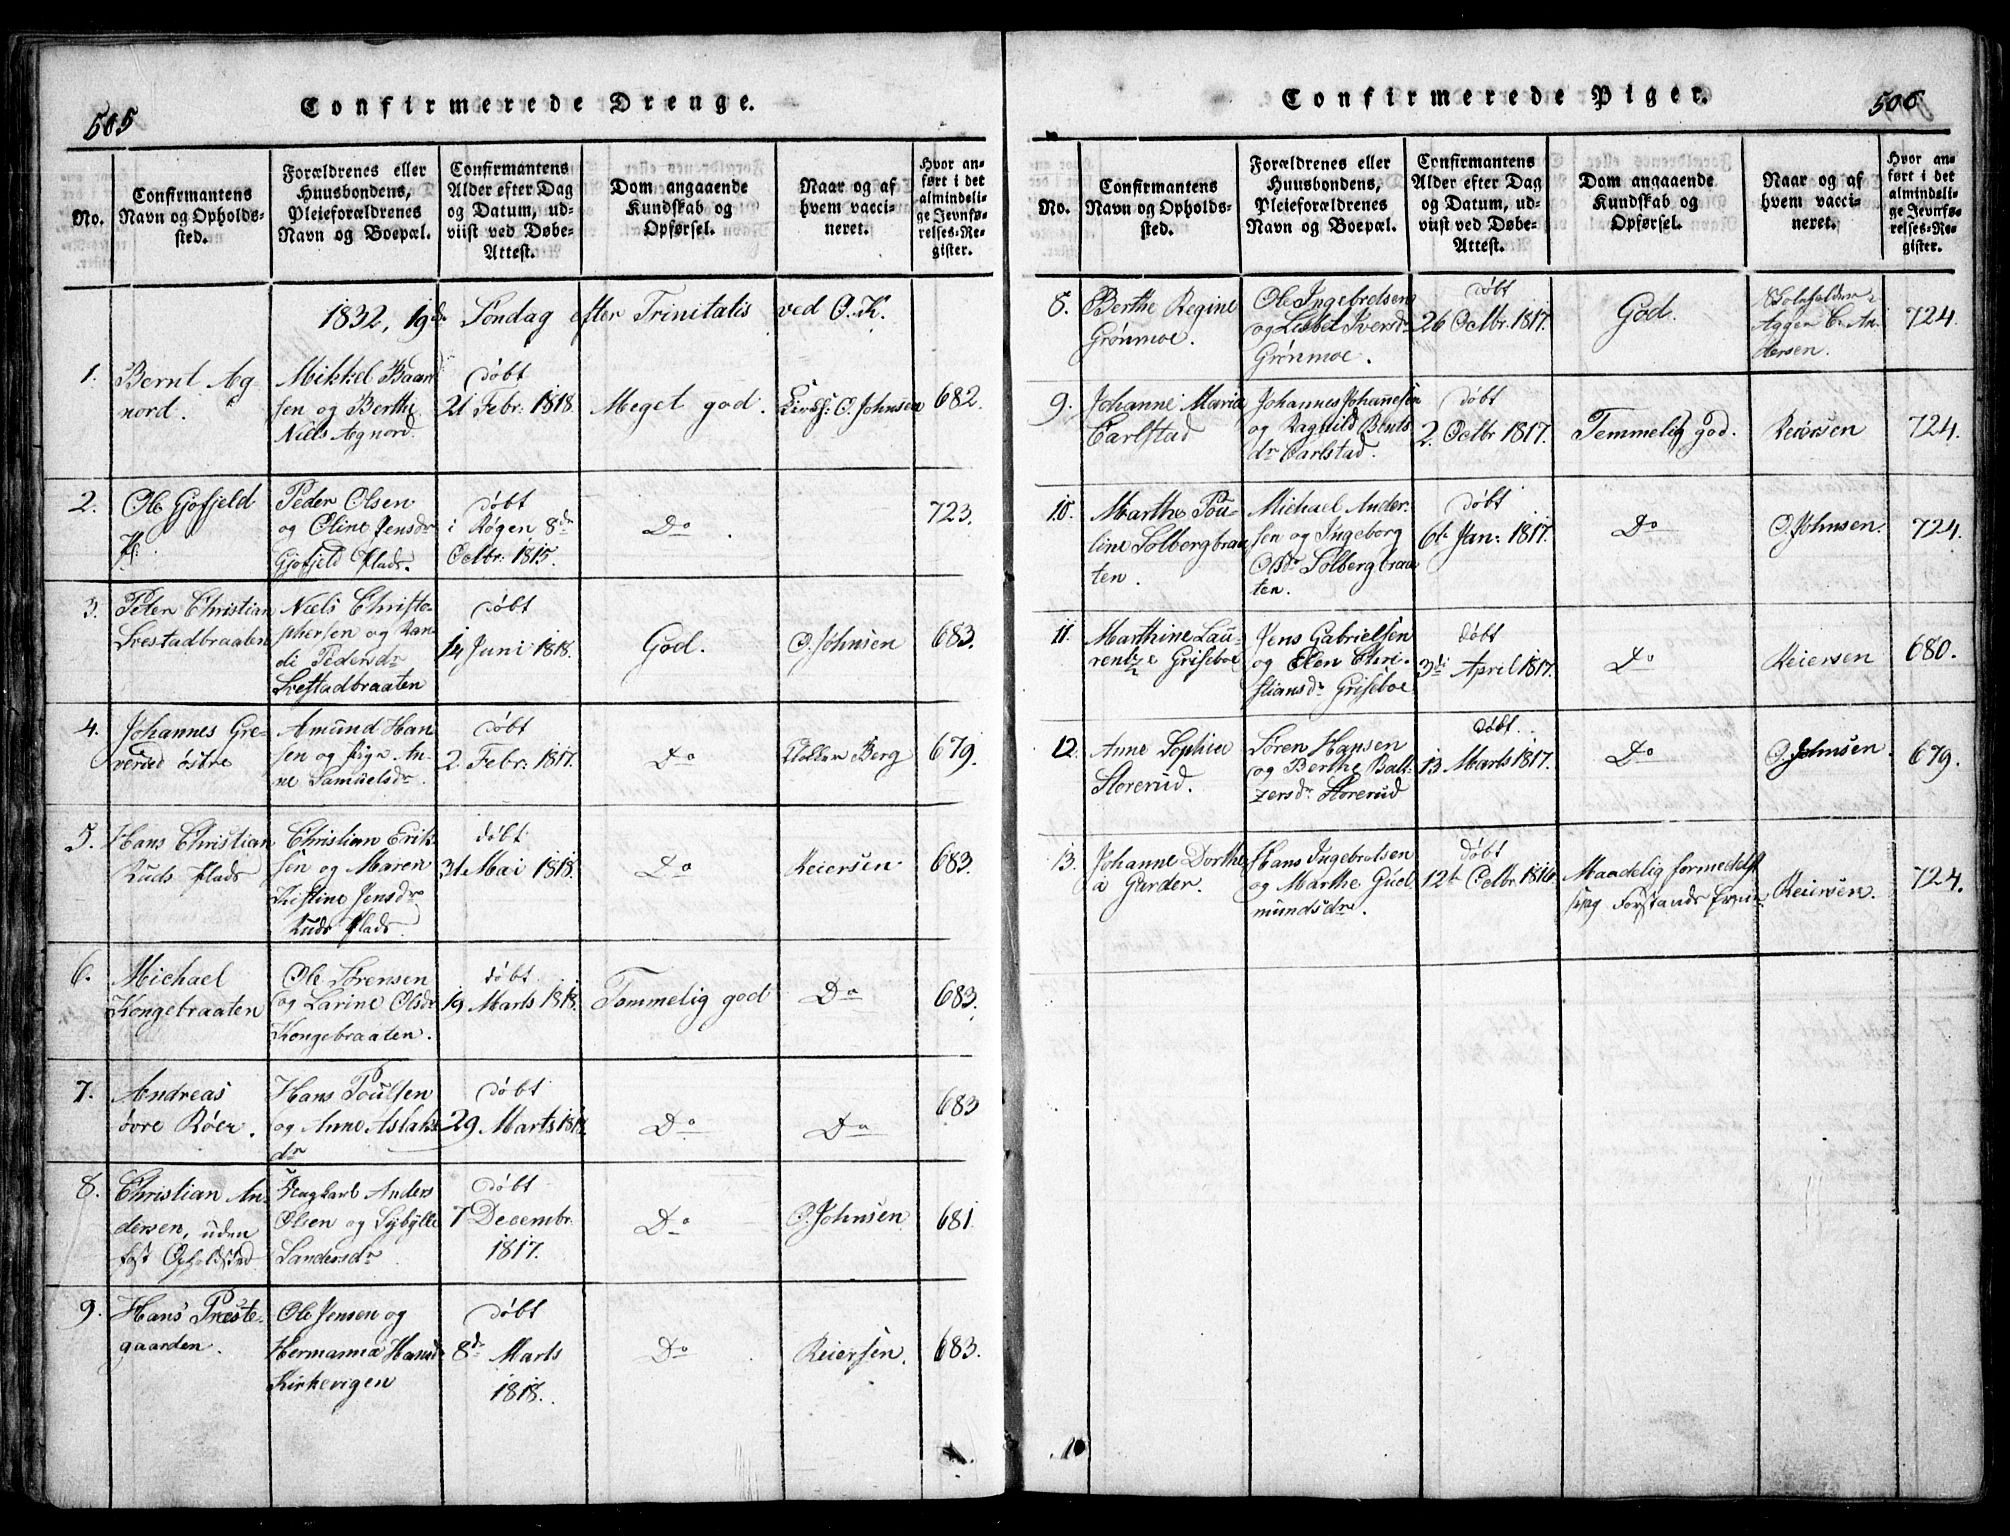 505
Confirmerede Drenge.
No.
Confirmantens
Navn og Opholds-
sted.
Forældrenes eller
Huusbondens,
Pleieforældrenes
Navn og Boepæl.
Confirmantens
Alder efter Dag
og Datum, ud-
viist ved Døbe-
Attest.
Dom angaaende
Kundskab og
Opførsel.
Naar og af
hvem vacci-
neret.
Hvor an-
ført i det
almindeli-
ge Jevnfø-
relses-Re-
gister.
1832, 19de Søndag efter Trinitatis ved O. K.
1.
Bernt Ag-
nord.
Mikkel Baar
sen og Berthe
Niels Agnord.
døbt
21 Febr: 1818.
Meget god.
O. Johnsen
682.
2.
Ole Gjofjeld
Pl:
Peder Olsen
og Eline Jensdr
Gjofjeld Plads.
døbt
i Røgen 8de
Octbr: 1815.
Do
723.
3.
Peter Christian
Svestadbraaten
Næls Christo-
phersen og Ran-
di Pedersdr
Svestadbraaten
døbt
14 Juni 1818.
God.
O. Johnsen
683.
4.
Johannes Gre-
verud østre
Amund Han
sen og Pige An-
ne Samuelsdr.
døbt
2. Febr: 1817.
Do
Berg
679.
5.
Hans Christian
Ruds Plads
Christian Erik
sen og Maren
Kistine Jensdr
Ruds Plads.
døbt
31 Mai 1818.
Do
Reiersen.
683.
6.
Michael
Kongebraaten
Ole Sørensen
og Larine Olsdr
Kongebraaten.
døbt
19 Marts 1818.
Temmelig god
Do
683.
7.
Andreas
øvre Røer.
Hans Poulsen
og Anne Aslaks
dr
døbt
29 Marts 1818.
Do
Do
683
8.
Christian An-
dersen, uden
fast Opholdsted
Anders
Olsen og Sybylle
Sandersdr
døbt
7 Decembr.
1817.
Do
O. Johnsen
681.
9.
Hans Præste-
gaarden.
Ole Jensen og
Hermanna Hansdr
Kirkevigen
døbt
8de Marts
1818.
Do
Reiersen.
683.
506
Confirmerede Piger.
No.
Confirmantens
Navn og Opholds-
sted.
Forældrenes eller
Huusbondens,
Pleieforældrenes
Navn og Boepæl.
Confirmantens
Alder efter Dag
og Datum, ud-
viist ved Døbe-
Attest.
Dom angaaende
Kundskab og
Opførsel.
Naar og af
hvem vacci-
neret.
Hvor an-
ført i det
almindeli-
ge Jevnfø-
relses-Re-
gister.
8.
Berthe Regine
Grønmoe.
Ole Ingebretsen
og Lisbet Iversdr
Grønmoe.
døbt
26 Octbr. 1817.
God.
Agger C. An-
dersen.
724.
9.
Johanne Maria
Carlstad
Johannes Johanesen
og Ragnild Bents
dr Carlstad.
døbt
2. Octbr 1817.
Temmelig god.
Reiersen
724.
10.
Marthe Pou-
line Solbergbraa
ten.
Michael Ander
sen og Ingeborg
Olsdr Solbergbraa
ten.
døbt
6te Jan: 1817.
Do
O. Johnsen.
724.
11.
Marthine Lau-
rentze Griseboe
Jens Gabrielsen
og Elen Chri-
stiansdr Griseboe.
døbt
3di April 1817.
Do
Reiersen
680.
12.
Anne Sophia
Storerud.
Søren Hansen
og Berthe Balt-
zersdr Storerud
døbt.
13 Marts 1817.
Do
O. Johnsen.
679.
13.
Johanne Dorthe
Garder.
Hans Ingebretsen
og Marthe Gud
mundsdr.
døbt
12te Octbr. 1816
Maadelig formedelst
svag Forstands Evner
Reiersen.
724.